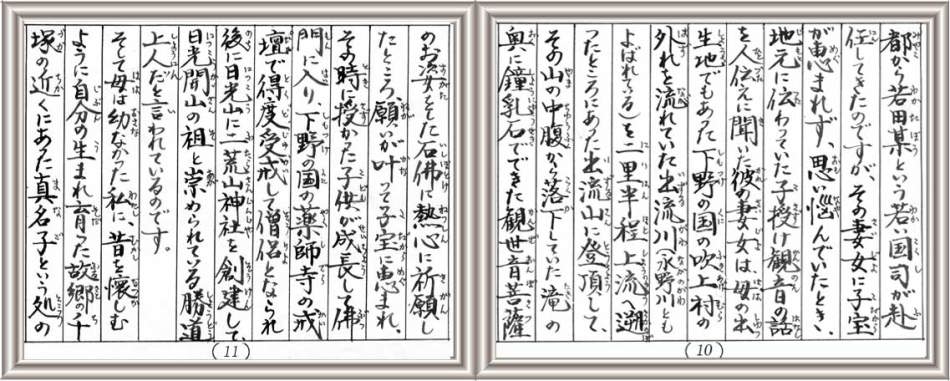 都から若田某という若い国司が赴
任してきたのですが、その妻女に子宝
が恵まれず、思い悩んでいたとき、
地元に伝わっていた子授け観音の話
を人伝えに聞いた彼の妻女は、母の出
生地でもあった下野の国の吹上村の
外れを流れていた出流川(永野川とも
よばれる)を二里半程上流へ遡
ったところにあった出流山に登頂して、
その山の中腹から落下していた滝の
奥に鐘乳石でできた観世音菩薩
(10)
のお姿をした石佛に熱心に祈願し
たところ、願いが叶って子宝に恵まれ、
その時に授かった子供が成長して佛
門に入り、下野の国の薬師寺の戒
壇で得度受戒して僧侶となられ
後に日光山に二荒山神社を創建して、
日光開山の祖と崇められている勝道
上人だと言われているのです。
そして母は幼なかった私に、昔を懐しむ
ように自分の生まれ育った故郷の十
塚の近くにあった真名子という処の
(11)